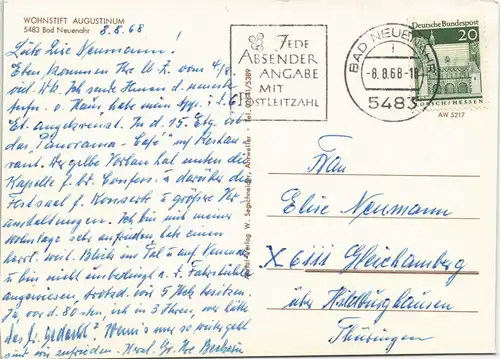 WOHNSTIFT AUGUSTINUM
5483 Bad Neuenahr
8.8.68
Liebe Elise Neumann!
Eben kommen Ihre
Ich sende Ihnen d. neueste
v. Haus,
Et. angekreuzt. In d. 15. Etg. ist
das "Panorama-Café" mit Restau-
rant. Der gelbe Vorbau hat unten die
Kapelle f. bd. Confess. u. darüber den
Festsaal f. Konzerte u. größere Ver-
anstaltungen. Ich bin mit meiner
Wohnlage sehr zufrieden habe einen
herrl. weit. Blick ins Tal u. auf Neuenahr
u. bin nicht unbedingt a. d. Fahrstühle
angewiesen, trotzd. wir 5 Stck besitzen.
Ja vor d. 80-ern, ich in 3 Ihren, wer hätte
das je gedacht? Wenn's nur so weiter geht
sind wir zufrieden. Herzl. Gr. Ihre
JEDE
ABSENDER
ANGABE
MIT
POSTLEITZAHL
BAD NEUENAHR 1
-8.8.68-18
5483
Deutsche Bundespost
20
LORSCH/HESSEN
AW 5217
Verlag W. Segschneider, Ahrweiler · Tel. 02641/5389
Frau
Elise Neumann
X 6111 Gleichamberg
über Hildburghausen
Thüringen